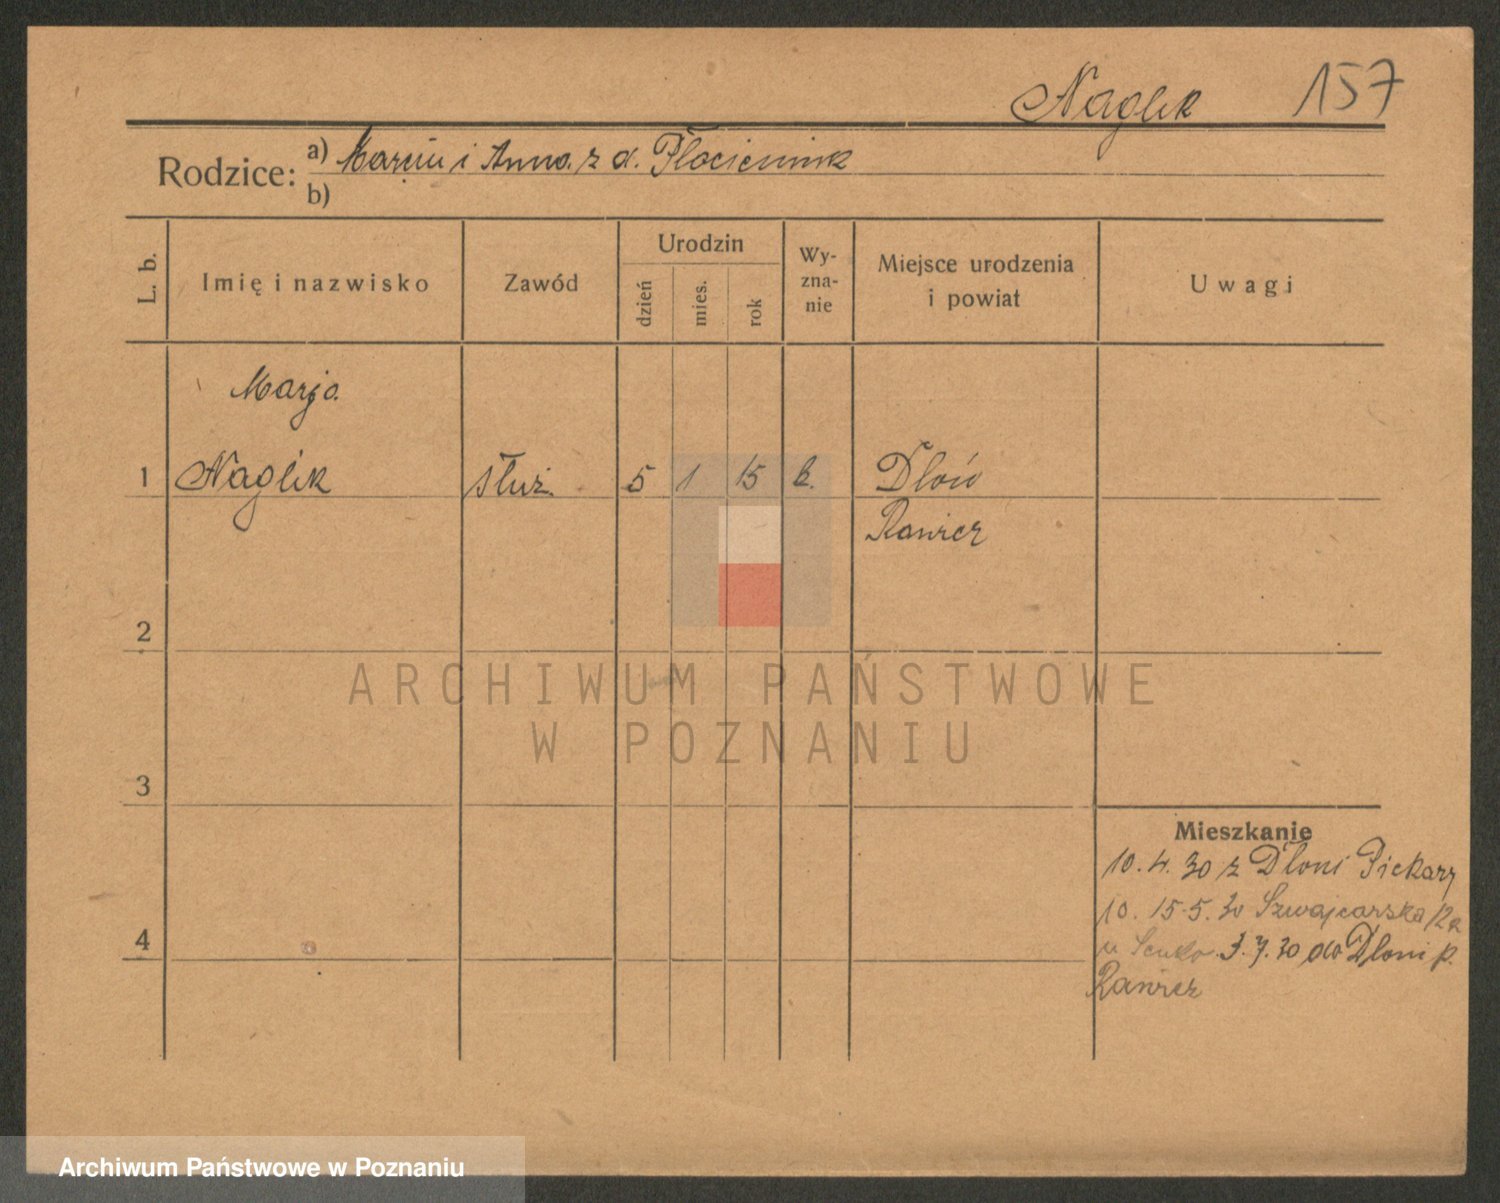 Naglik 157
Rodzice: a) Marcin i Anna z d. Płóciennik
b)
L. b. Imię i nazwisko Zawód Urodzin dzień mies. rok Wy-zna-nie Miejsce urodzenia i powiat Uwagi
Marja
1 Naglik służ. 5 1 15 k. Dłoń
Rawicz
2
ARCHIWUM PAŃSTWOWE
W POZNANIU
3
Mieszkanie
10.4.30 z Dłoni Piekary
10. 15.5.30 Szwajcarska 12a
4
u 3.7.30 do Dłoni p.
Rawicz
Archiwum Państwowe w Poznaniu